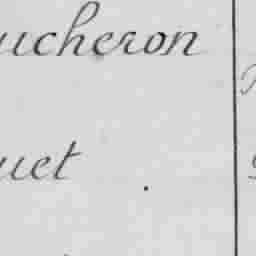 ucheron
uet